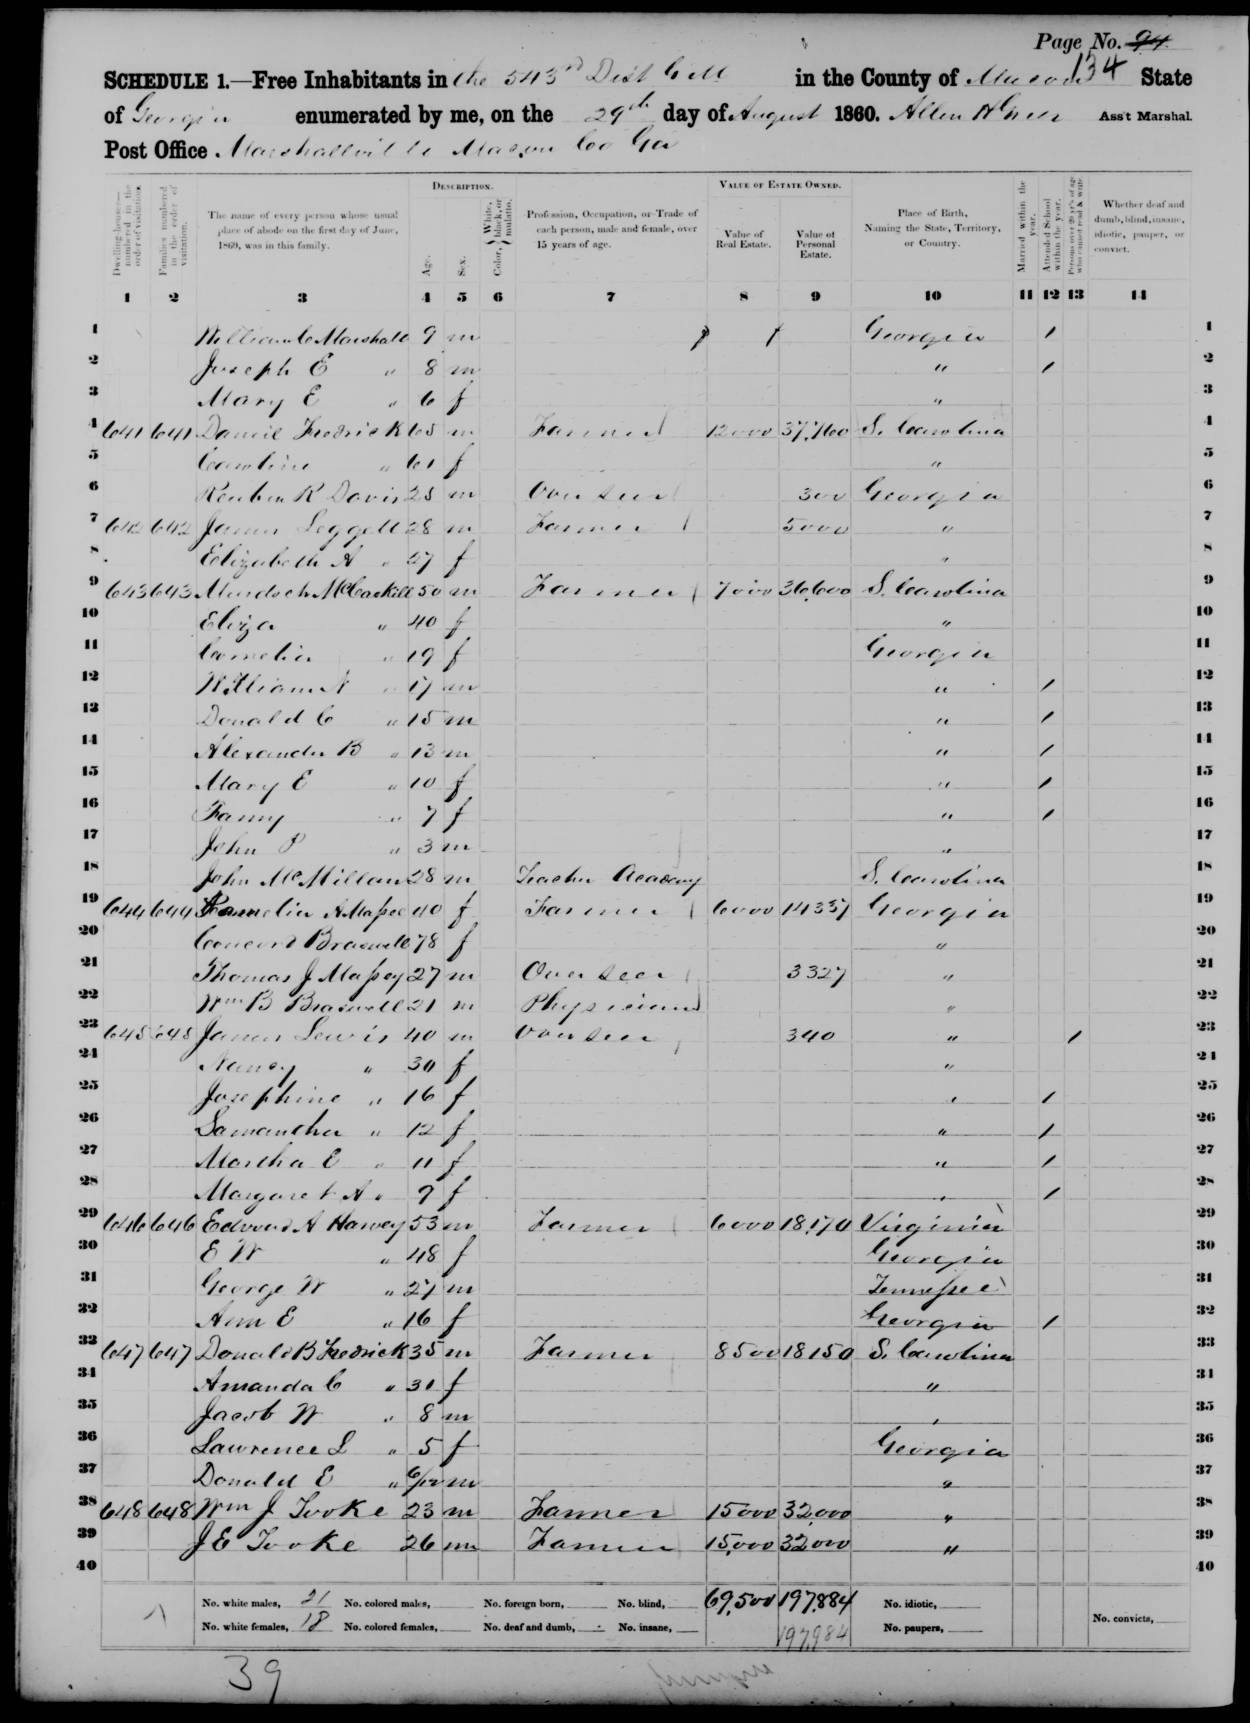 Page No. 94
134
SCHEDULE 1.—Free Inhabitants in the 543rd Dist G M in the County of Macon State
of Georgia enumerated by me, on the 29th day of August 1860. Allen Ass't Marshal.
Post Office Marshallville Macon Co Ga
DESCRIPTION. VALUE OF ESTATE OWNED.
Dwelling-houses—numbered in the order of visitation. Families numbered in the order of visitation. The name of every person whose usual place of abode on the first day of June, 1860, was in this family. Age. Sex. Color, White, black, or mulatto. Profession, Occupation, or Trade of each person, male and female, over 15 years of age. Value of Real Estate. Value of Personal Estate. Place of Birth, Naming the State, Territory, or Country. Married within the year. Attended School within the year. Persons over 20 y'rs of age who cannot read & write. Whether deaf and dumb, blind, insane, idiotic, pauper, or convict.
1 2 3 4 5 6 7 8 9 10 11 12 13 14
1 William C Marshall 9 m Georgia / 1
2 Joseph E " 8 m " / 2
3 Mary E " 6 f " 3
4 641 641 Daniel Fredrick 65 m Farmer 12000 37,760 S. Carolina 4
5 Caroline " 61 f " 5
6 Reuben R Davis 25 m Overseer 300 Georgia 6
7 642 642 James Leggett 28 m Farmer 5000 " 7
8 Elizabeth A " 27 f " 8
9 643 643 Murdoch McCaskill 50 m Farmer 7000 36,600 S. Carolina 9
10 Eliza " 40 f " 10
11 Cornelia " 19 f Georgia 11
12 William N " 17 m " / 12
13 Donald C " 15 m " / 13
14 Alexander B " 13 m " / 14
15 Mary E " 10 f " / 15
16 Fanny " 7 f " / 16
17 John P " 3 m " 17
18 John McMillan 28 m Teacher Academy S. Carolina 18
19 644 644 Permelia A Massee 40 f Farmer 6000 14337 Georgia 19
20 Braswell 78 f " 20
21 Thomas J Massey 27 m Overseer 3327 " 21
22 Wm B Braswell 21 m Physician " 22
23 645 645 James Lewis 40 m Overseer 340 " / 23
24 Nancy " 30 f " 24
25 Josephine " 16 f " / 25
26 Samantha " 12 f " / 26
27 Martha E " 11 f " / 27
28 Margaret A " 9 f " / 28
29 646 646 Edward A Harvey 53 m Farmer 6000 18,170 Virginia 29
30 E W " 48 f Georgia 30
31 George W " 27 m Tennessee 31
32 Ann E " 16 f Georgia / 32
33 647 647 Donald B Fredrick 35 m Farmer 8500 18150 S. Carolina 33
34 Amanda C " 31 f " 34
35 Jacob W " 8 m " 35
36 Lawrence L " 5 f Georgia 36
37 Donald E " 6/12 m " 37
38 648 648 Wm J Tooke 23 m Farmer 15000 32,000 " 38
39 J E Tooke 26 m Farmer 15,000 32,000 " 39
40 40
No. white males, 21 No. colored males, No. foreign born, No. blind, 69,500 197,884 No. idiotic,
No. white females, 18 No. colored females, No. deaf and dumb, No. insane, 197,984 No. paupers, No. convicts,
39